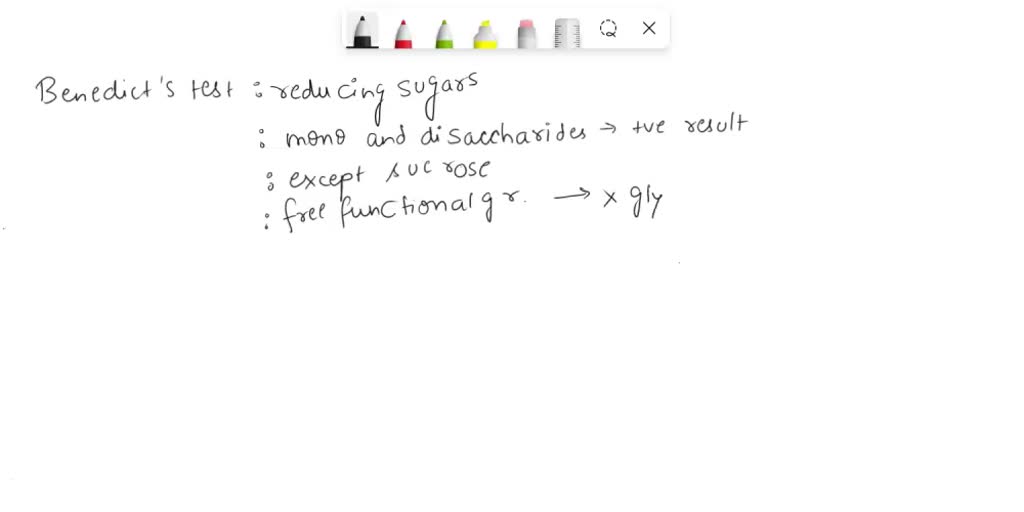 Benedict's test : reducing sugars
: mono and disaccharides → +ve result
: except sucrose
: free functional gr. → x gly